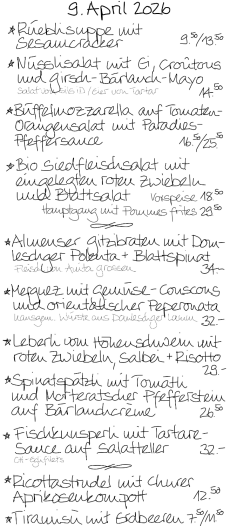 9. April 2026
* Rüeblisuppe mit
Sesamcracker 9.50/13.50
* Nüsslisalat mit Ei, Croûtons
und Girsch-Bärlauch-Mayo
14.50
* Büffelmozzarella auf Tomaten-
Orangensalat mit Paradies-
Pfeffersauce 16.50/25.50
* Bio Siedfleischsalat mit
eingelegten roten Zwiebeln
und Blattsalat Vorspeise 18.50
Hauptgang mit Pommes frites 29.50
* Almenser Gitzibraten mit Dom-
leschger Polenta + Blattspinat
Fleisch von 34.-
* Merguez mit Gemüse-Couscous
und orientalischer Peperonata
Würste aus Domleschger Lamm 32.-
* Leberli vom Höhenschwein mit
roten Zwiebeln, Salbei + Risotto
29.-
* Spinatspätzli mit Tomätli
und Morteratscher Pfefferstein
auf Bärlauchcrème 26.50
* Fischknusperli mit Tartare-
Sauce auf Salatteller 32.-
CH-Eglifilets
* Ricottastrudel mit Churer
Aprikosenkompott 12.50
* Tiramisù mit Erdbeeren 7.50/11.50